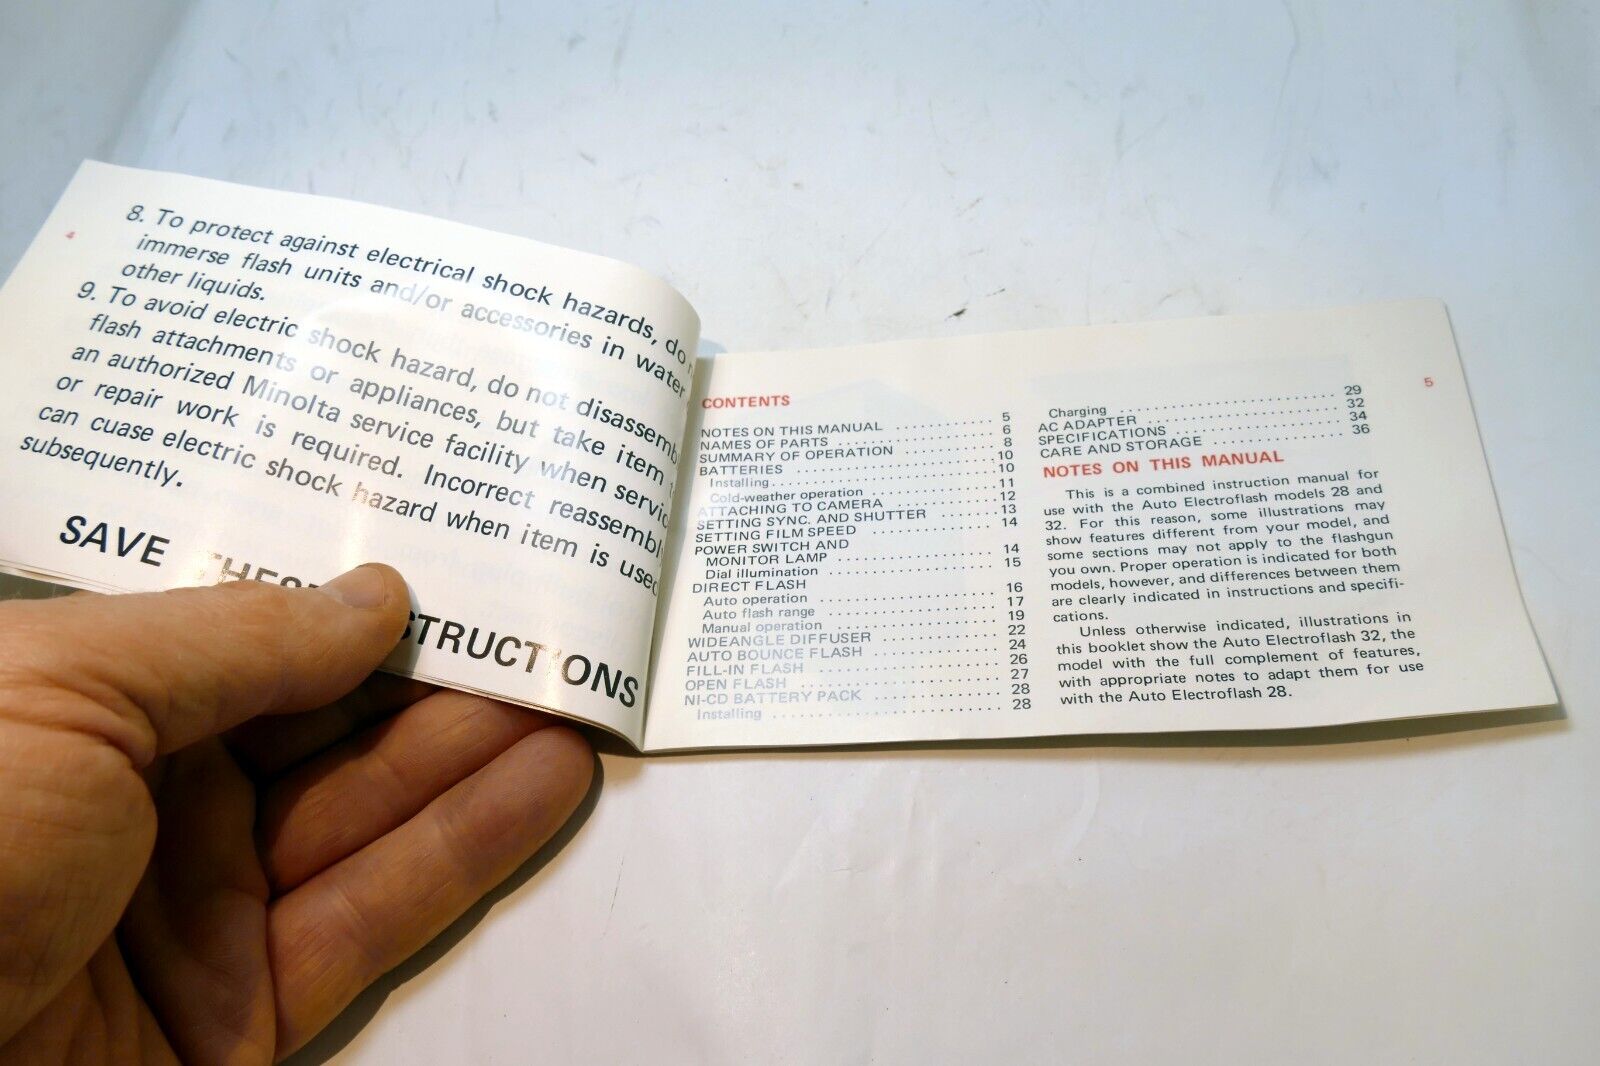 4
8. To protect against electrical shock hazards, do
immerse flash units and/or accessories in water
other liquids.
9. To avoid electric shock hazard, do not disassemb
flash attachments or appliances, but take item
an authorized Minolta service facility when servic
or repair work is required. Incorrect reassembl
can cuase electric shock hazard when item is used
subsequently.
SAVE THESE INSTRUCTIONS
5
CONTENTS
NOTES ON THIS MANUAL .......... 5
NAMES OF PARTS .......... 6
SUMMARY OF OPERATION .......... 8
BATTERIES .......... 10
Installing .......... 10
Cold-weather operation .......... 11
ATTACHING TO CAMERA .......... 12
SETTING SYNC. AND SHUTTER .......... 13
SETTING FILM SPEED .......... 14
POWER SWITCH AND
MONITOR LAMP .......... 14
Dial illumination .......... 15
DIRECT FLASH
Auto operation .......... 16
Auto flash range .......... 17
Manual operation .......... 19
WIDEANGLE DIFFUSER .......... 22
AUTO BOUNCE FLASH .......... 24
FILL-IN FLASH .......... 26
OPEN FLASH .......... 27
NI-CD BATTERY PACK .......... 28
Installing .......... 28
Charging .......... 29
AC ADAPTER .......... 32
SPECIFICATIONS .......... 34
CARE AND STORAGE .......... 36
NOTES ON THIS MANUAL
This is a combined instruction manual for
use with the Auto Electroflash models 28 and
32. For this reason, some illustrations may
show features different from your model, and
some sections may not apply to the flashgun
you own. Proper operation is indicated for both
models, however, and differences between them
are clearly indicated in instructions and specifi-
cations.
Unless otherwise indicated, illustrations in
this booklet show the Auto Electroflash 32, the
model with the full complement of features,
with appropriate notes to adapt them for use
with the Auto Electroflash 28.